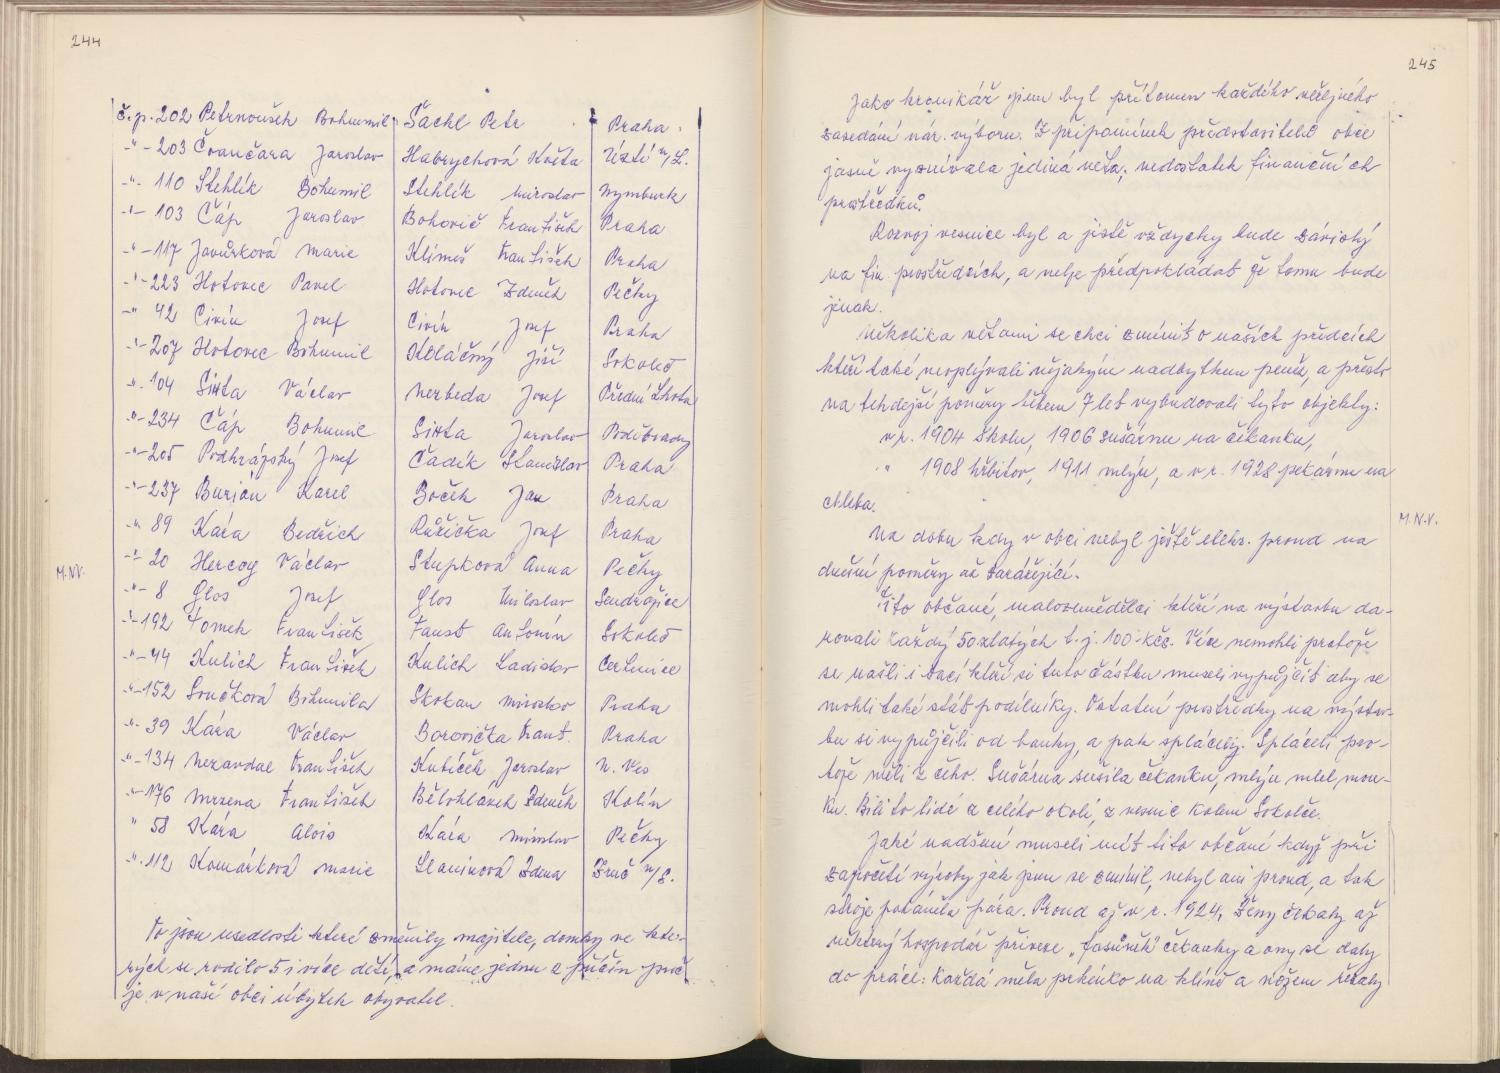 244
č.p. 202 Petrnoušek Bohumil Šáchl Petr Praha.
-"- 203 Čvančara Jaroslav Habrychová Květa Ústí n/L.
-"- 110 Stehlík Bohumil Stehlík Miroslav Nymburk
-"- 103 Čáp Jaroslav Bohovič František Praha
-"- 117 Javůrková Marie Klimeš František Praha
-"- 223 Hotovec Pavel Hotovec Zdeněk Pečky
-"- 42 Civín Josef Civín Josef Praha
-"- 207 Hotovec Bohumil Koláčný Jiří Sokoleč
-"- 104 Sixta Václav Nezbeda Josef Přední Lhota
-"- 234 Čáp Bohumil Sixta Jaroslav Poděbrady
-"- 205 Podhrázský Josef Čadík Stanislav Praha
-"- 237 Burian Karel Boček Jan Praha
-"- 89 Kára Bedřich Růžička Josef Praha
-"- 20 Hercog Václav Stupková Anna Pečky
M.N.V.
-"- 8 Glos Josef Glos Miloslav Sendražice
-"- 192 Tomek František Faust Antonín Sokoleč
-"- 44 Kulich František Kulich Ladislav Cerhenice
-"- 152 Součková Bohumila Skokan Miroslav Praha
-"- 39 Kára Václav Borovička Frant. Praha
-"- 134 Nezavdal František Kutíček Jaroslav N. Ves
-"- 176 Mrzena František Bělohlávek Zdeněk Kolín
" 58 Kára Alois Kára Miroslav Pečky
-"- 112 Komárková Marie Slavínová Zdena Zruč n/S.
To jsou usedlosti které změnily majitele, domky ve kte-
rých se rodilo 5 i více dětí, a máme jednu z příčin proč
je v naší obci úbytek obyvatel.
245
Jako kronikář jsem byl přítomen každého veřejného
zasedání nár. výboru. Z připomínek představitelů obce
jasně vyznívala jediná věta; nedostatek finančních
prostředků.
Rozvoj vesnice byl a jistě vždycky bude závislý
na fin. prostředcích, a nelze předpokládat že tomu bude
jinak.
Několika větami se chci zmínit o našich předcích
kteří také neoplývali nějakým nadbytkem peněz, a přesto
na tehdejší poměry během 7 let vybudovali tyto objekty:
v r. 1904 školu, 1906 sušárnu na čekanku,
" 1908 hřbitov, 1911 mlýn, a v r. 1928 pekárnu na
chleba.
M.N.V.
Na dobu kdy v obci nebyl ještě elekr. proud na
dnešní poměry až zarážející.
Tito občané, malozemědělci kteří na výstavbu da-
rovali každý 50 zlatých t.j. 100 kčs. Více nemohli protože
se našli i tací kteří si tuto částku museli vypůjčit aby se
mohli také stát podílníky. Ostatní prostředky na výstav-
bu si vypůjčili od banky, a pak spláceli. Spláceli pro-
tože měli z čeho. Sušárna sušila čekanku, mlýn mlel mou-
ku. Bili to lidé z celého okolí, z vesnic kolem Sokolče.
Jaké nadšení museli mít tito občané když při
započetí výroby jak jsem se zmínil, nebyl ani proud, a tak
stroje poháněla pára. Proud až v r. 1924. Ženy čekaly až
některý hospodář přiveze „fasuněk" čekanky a ony se daly
do práce: každá měla prkénko na klíně a nožem řezaly